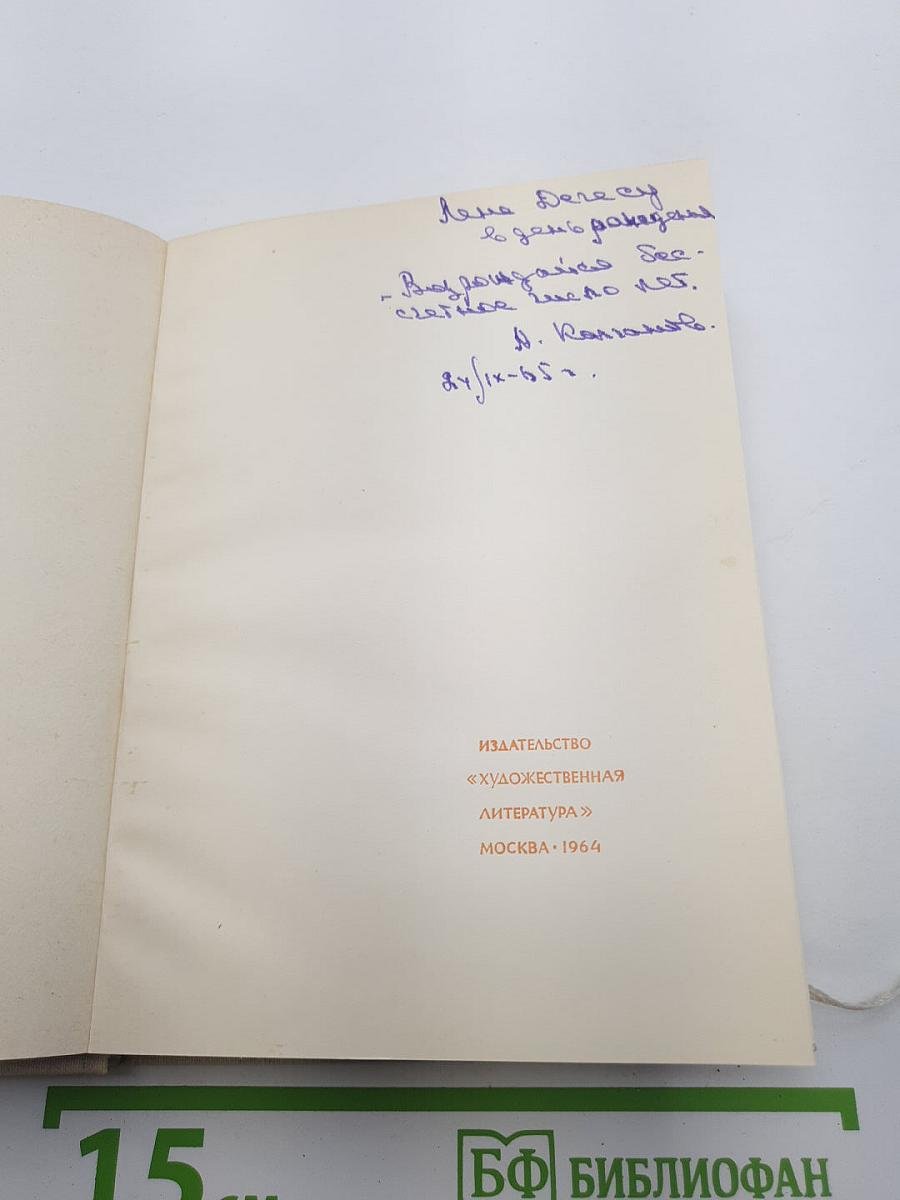 Лене Дегесу
в день рождения
- Возрождайся бес-
счетное число лет.
А. Колганов.
24/IX-65 г.
ИЗДАТЕЛЬСТВО
«ХУДОЖЕСТВЕННАЯ
ЛИТЕРАТУРА»
МОСКВА • 1964
15 см
БФ БИБЛИОФАН